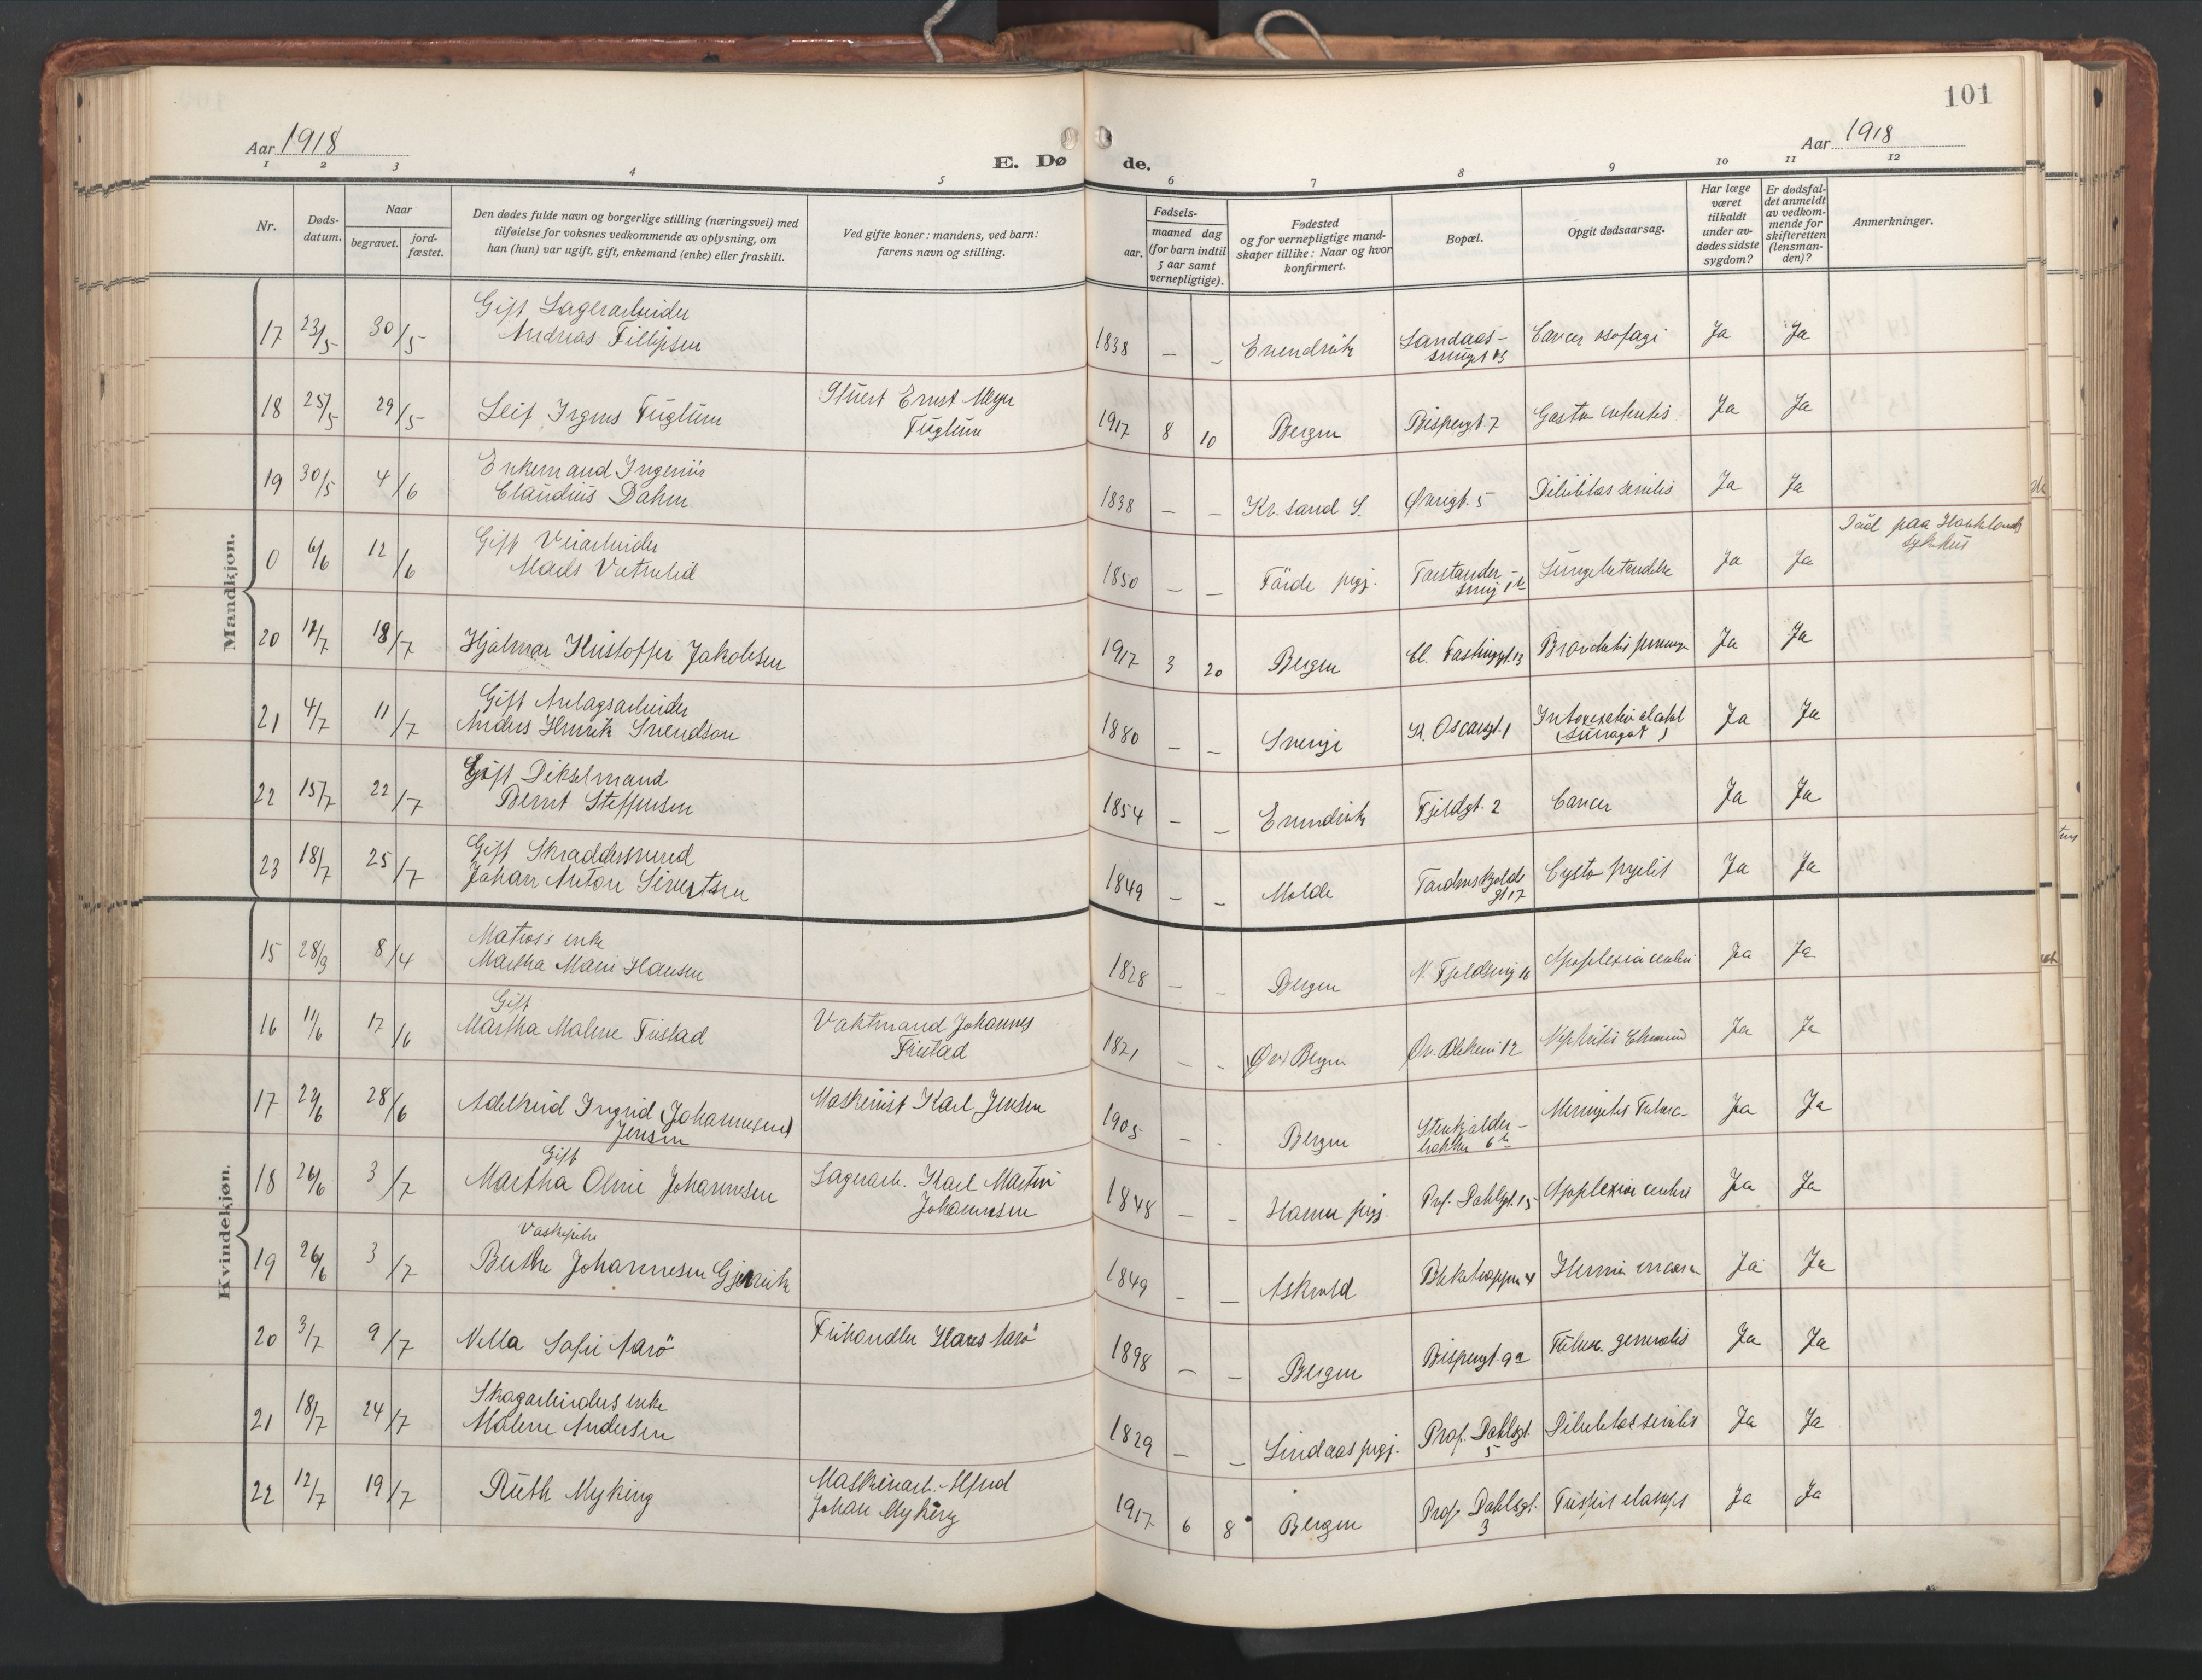 101
Aar 1918
Aar 1918
E. Dø de.
1 2 3 4 5 6 7 8 9 10 11 12
Nr.
Døds-
datum.
Naar
begravet.
jord-
fæstet.
Den dødes fulde navn og borgerlige stilling (næringsvei) med
tilføielse for voksnes vedkommende av oplysning, om
han (hun) var ugift, gift, enkemand (enke) eller fraskilt.
Ved gifte koner: mandens, ved barn:
farens navn og stilling.
Fødsels-
aar.
maaned dag
(for barn indtil
5 aar samt
vernepligtige).
Fødested
og for vernepligtige mand-
skaper tillike: Naar og hvor
konfirmert.
Bopæl.
Opgit dødsaarsag.
Har læge
været
tilkaldt
under av-
dødes sidste
sygdom?
Er dødsfal-
det anmeldt
av vedkom-
mende for
skifteretten
(lensman-
den)?
Anmerkninger.
Mandkjøn.
17 23/5 30/5 Gift Lagerarbeider
Andreas Fillipsen
1838 — — Evendvik Landaas-
Cancer Ja Ja
18 25/5 29/5 Leif Fuglum
Ernst
Fuglum
1917 8 10 Bergen Bispengt. 7 Ja Ja
19 30/5 4/6 Enkemand Ingeniør
Claudius Dahm
1838 — — Kr.sand S. Øvregt. 5 Debilitas senilis Ja Ja
0 6/6 12/6 Gift Veiarbeider
Mads
1850 — — Förde pgj. Lungebetendelse Ja Ja
Död paa Haukelands
sykehus
20 18/7 Hjalmar Kristoffer Jakobsen
1917 3 20 Bergen Ja Ja
21 4/7 11/7 Gift Anlagsarbeider
Anders Henrik Svendson
1880 — — Sverige K. Oscarsgt. 1 Ja Ja
22 15/7 22/7 Gift Dikselmand
Bernt Steffensen
1854 — — Evendvik Fjeldgt. 2 Cancer Ja Ja
23 18/7 25/7 Gift Skraddersvend
Johan Anton Sivertsen
1849 — — Molde Tordenskjolds
gt 17
Cysto pyelit Ja Ja
Kvindekjøn.
15 28/3 8/4 Matros's enke
Martha Marie Hansen
1828 — — Bergen Apoplexia cerebri Ja Ja
16 11/6 17/6 Gift
Martha Malene Tustad
Vaktmand Johannes
1821 — — Bergen Ja Ja
17 22/6 28/6 Adelheid Ingrid (Johannesen)
Jensen
Maskinist Karl Jensen
1905 — - Bergen Stenkjelder-
bakken
Meningitis Ja Ja
18 26/6 3/7 Gift
Martha Oline Johannesen
Lagerarb. Karl Martin
Johannesen
1848 — — Hamre pgj. Prof. Dahlsgt. 15 Apoplexia cerebri Ja Ja
19 26/6 3/7 Vaskepike
Berthe Johannesen Gjervik
1849 — — Askvold Hernia Ja Ja
20 3/7 9/7 Nella Sofie Aarö
Frihandler Hans Aarö
1898 — — Bergen Bispengt. 9a Tuberc. generalis Ja Ja
21 18/7 24/7 Skogarbeiders enke
Malene Andersen
1829 — — Lindaas pgj. Prof. Dahlsgt.
5
Debilitas senilis Ja Ja
22 12/7 19/7 Ruth Myking
Maskinarb. Alfred
Johan Myking
1917 6 8 Bergen Prof. Dahlsgt.
3
Ja Ja